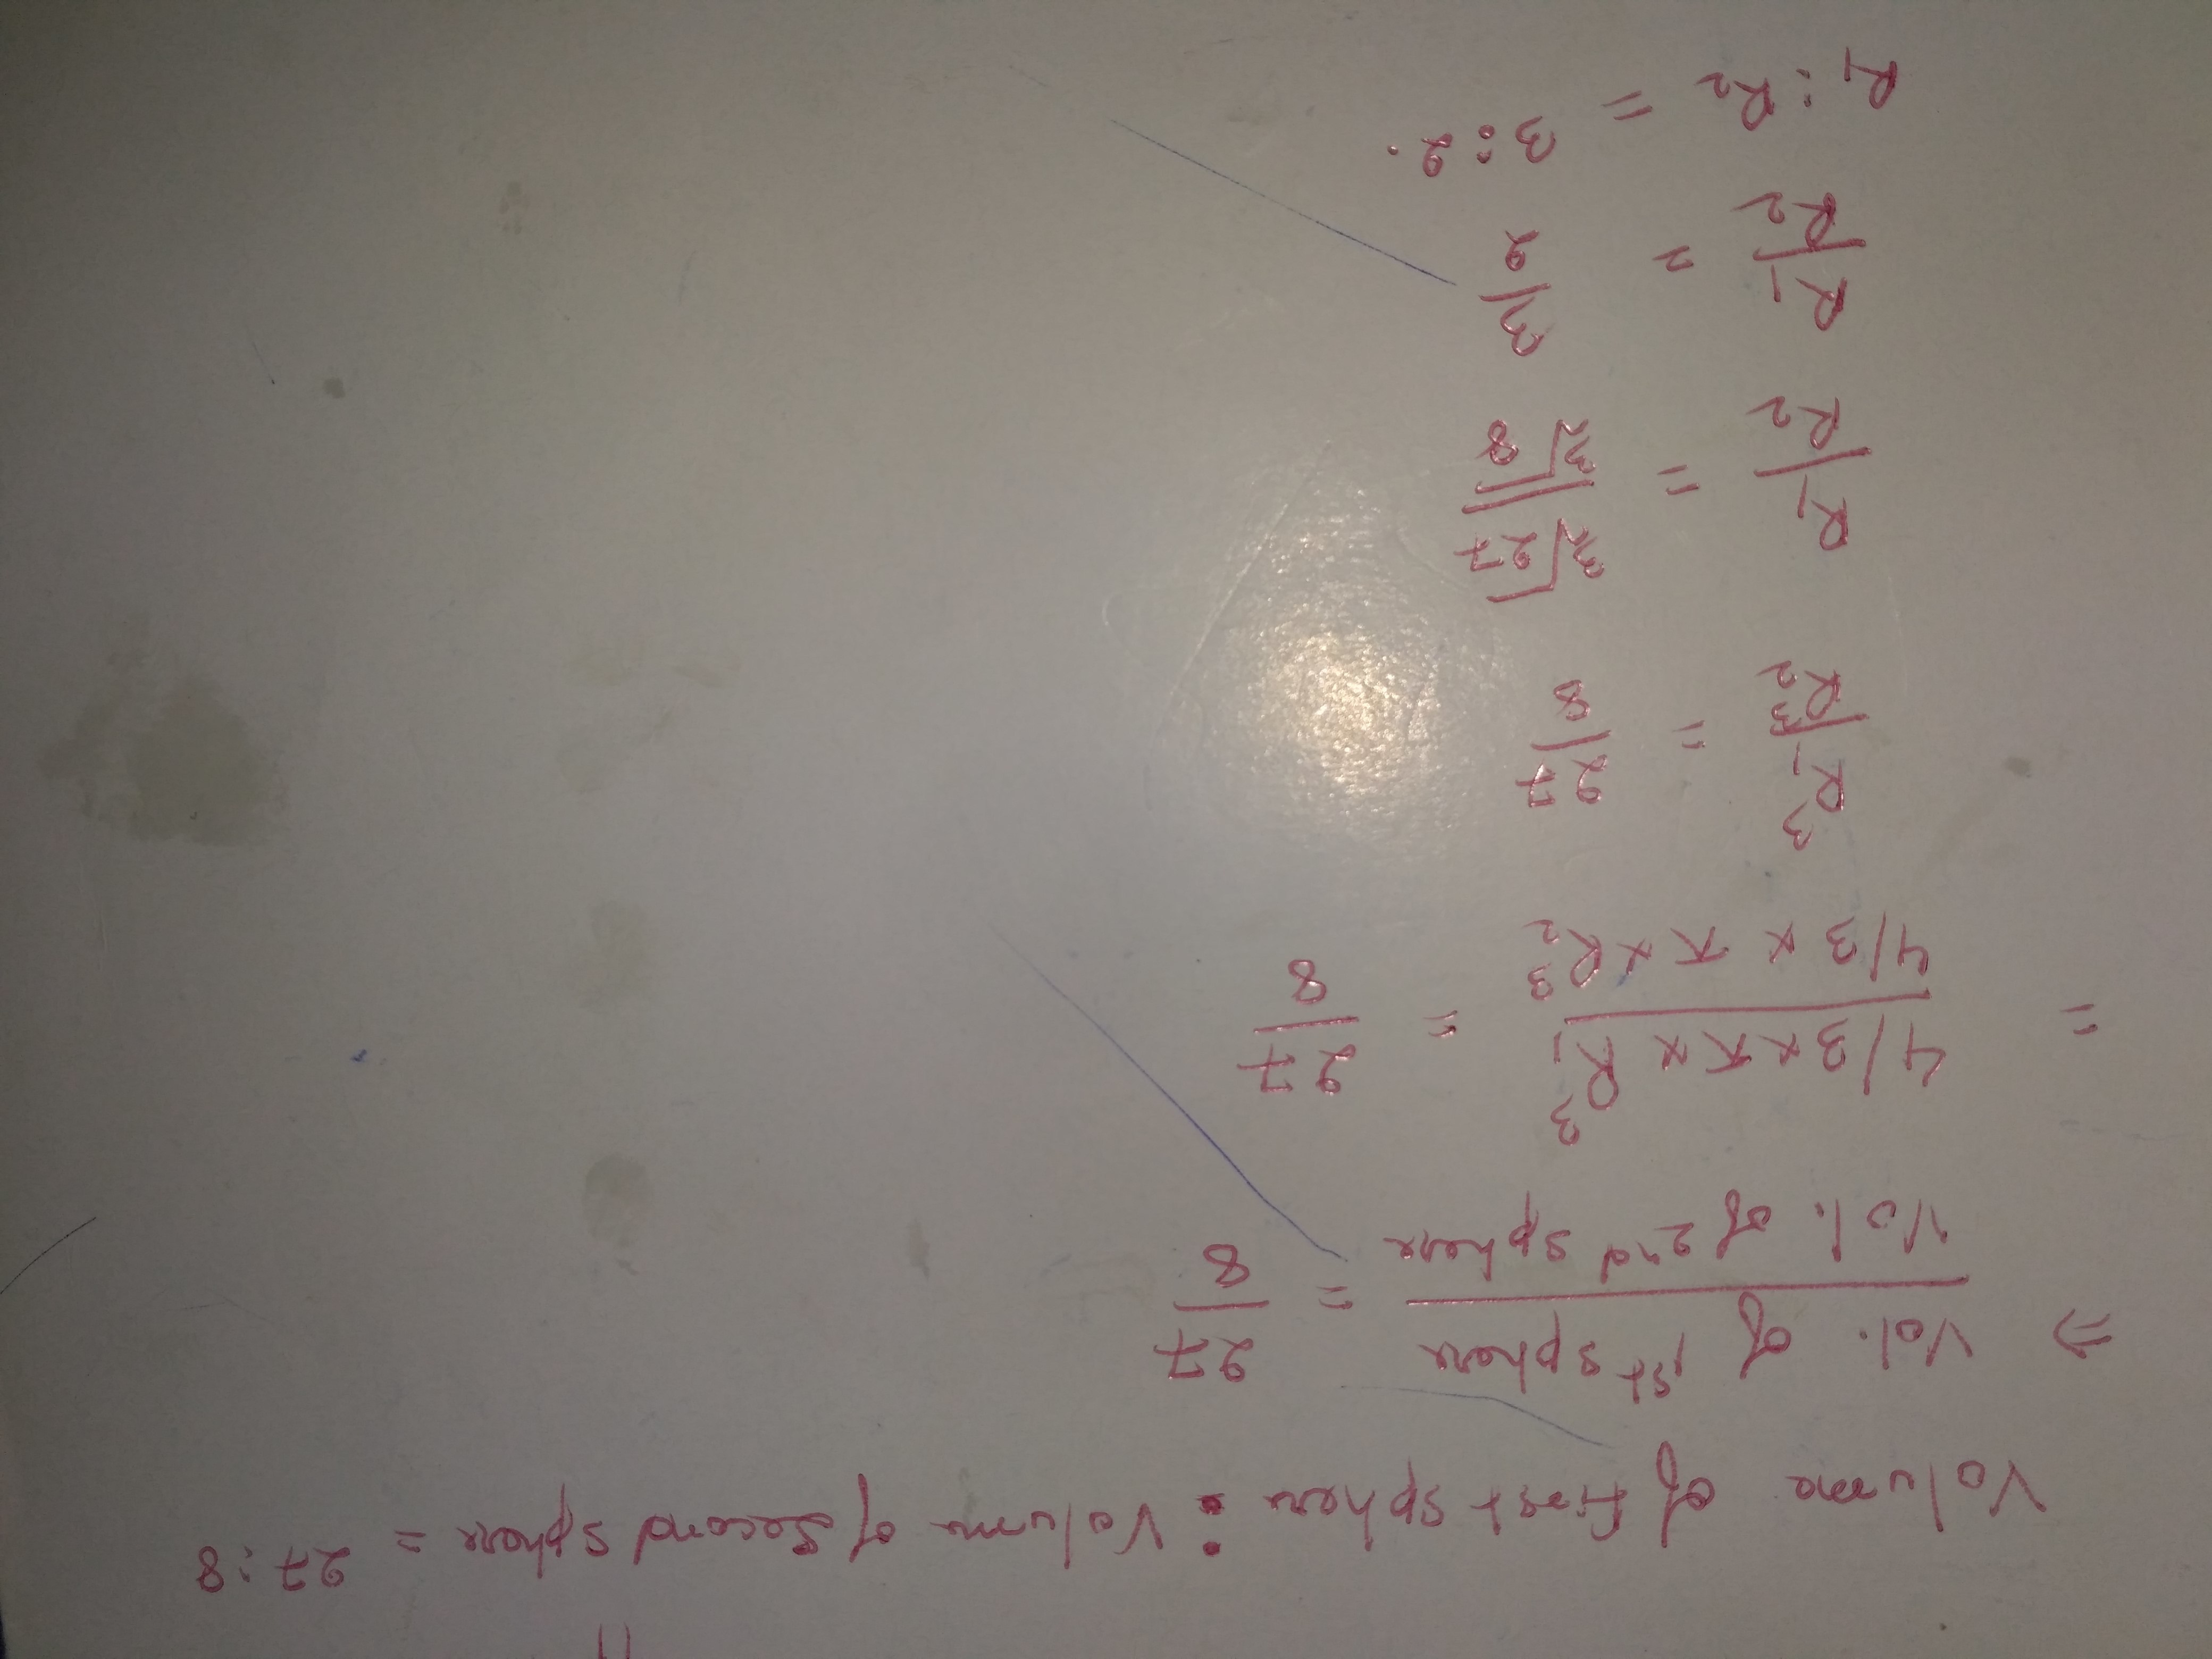 Volume of first sphere : Volume of Second sphere = 27:8
⇒ Vol. of 1st sphere / Vol. of 2nd sphere = 27/8
= 4/3 × π × R₁³ / 4/3 × π × R₂³ = 27/8
R₁³/R₂³ = 27/8
R₁/R₂ = ∛27/∛8
R₁/R₂ = 3/2
R₁:R₂ = 3:2.